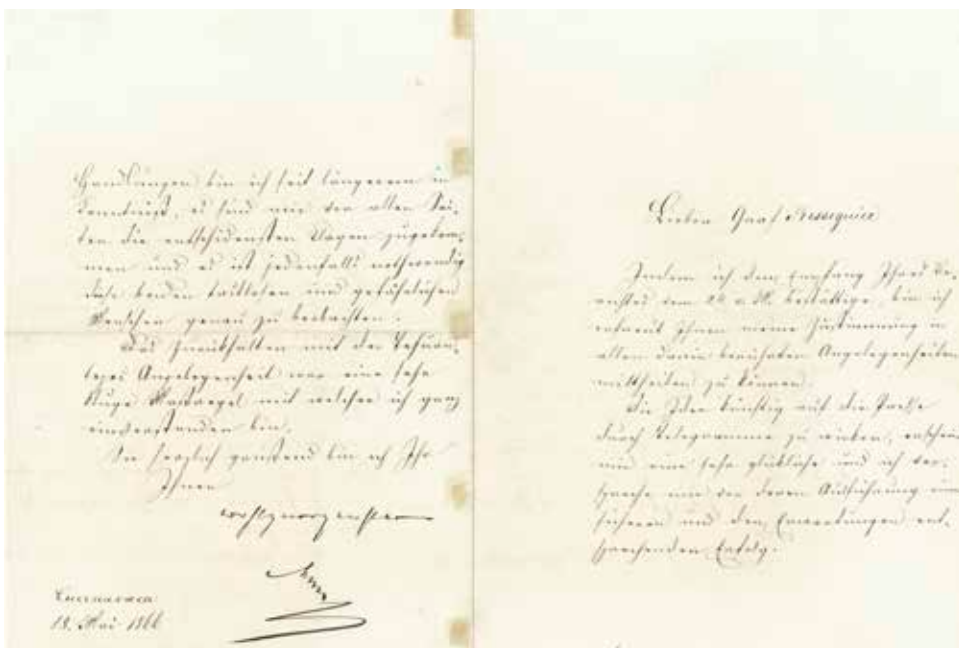 Handlungen bin ich seit längerem in
Kenntniß, es sind mir von allen Sei-
ten die entschidensten Klagen zugekom-
men und es ist jedenfalls nothwendig
diese beiden taktlosen und gefährlichen
Menschen genau zu beobachten.
Das Zurückhalten mit der Tehuan-
tepec Angelegenheit war eine sehr
kluge Maßregel mit welcher ich ganz
einverstanden bin.
Sie herzlich grüßend bin ich Ihr
Ihnen
wohlgewogenster
Cuernavaca
18. Mai 1866
Lieber Graf Resseguier
Indem ich den Empfang Ihres Be-
richtes vom v. M. bestättige, bin ich
erfreut Ihnen meine Zustimmung in
allen darin berührten Angelegenheiten
mittheilen zu können.
Die Idee künftig auf die Presse
durch Telegramme zu wirken, erschein
mir eine sehr glückliche und ich ver-
spreche mir von deren Ausführung ein
sicheren und den Erwartungen ent-
sprechenden Erfolg.